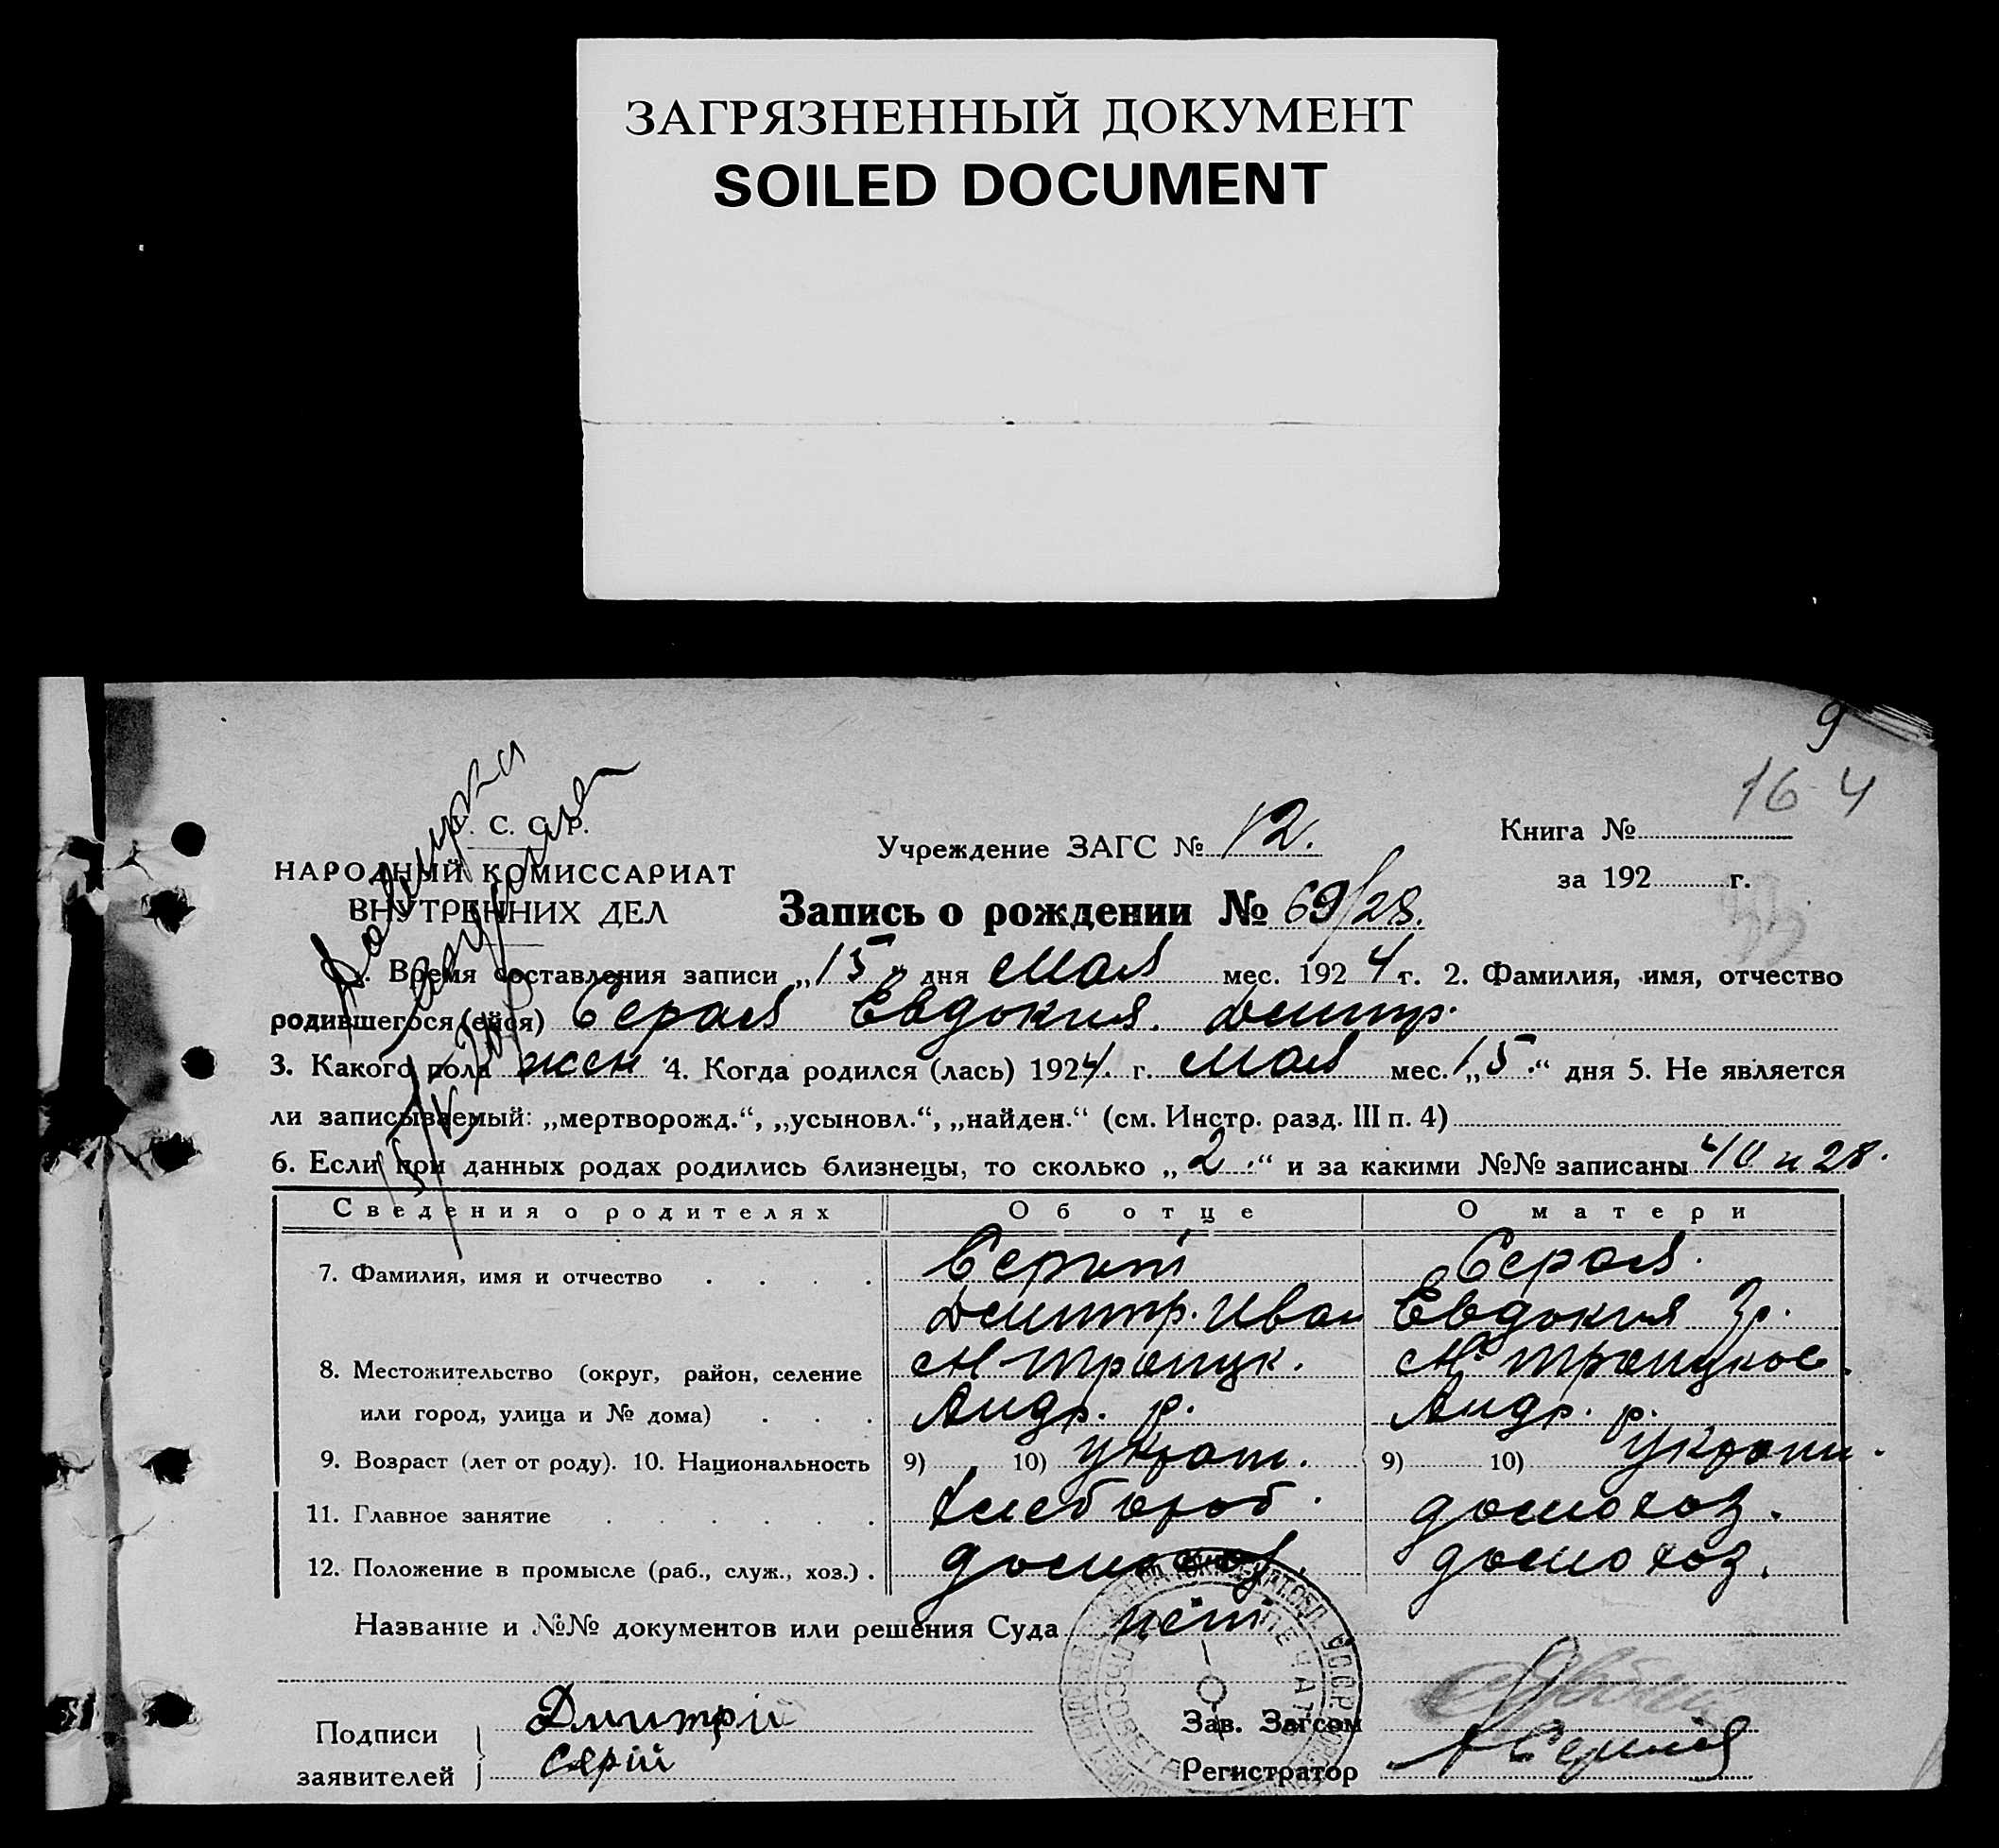 ЗАГРЯЗНЕННЫЙ ДОКУМЕНТ
SOILED DOCUMENT
9
16 4
. С. С. Р.
НАРОДНЫЙ КОМИССАРИАТ
ВНУТРЕННИХ ДЕЛ
Учреждение ЗАГС № 12.
Книга №
за 192 г.
Запись о рождении № 69/28.
. Время составления записи „15“ дня мая мес. 1924 г. 2. Фамилия, имя, отчество
родившегося (ейся) Серая Евдокия. Дмитр.
3. Какого пола жен 4. Когда родился (лась) 1924. г. мая мес. „15.“ дня 5. Не является
ли записываемый: „мертворожд.“, „усыновл.“, „найден.“ (см. Инстр. разд. III п. 4)
6. Если при данных родах родились близнецы, то сколько „2.“ и за какими №№ записаны 40 и 28.
Сведения о родителях Об отце О матери
7. Фамилия, имя и отчество . . . . Серый Серая.
Дмитр. Иван Евдокия Гр.
8. Местожительство (округ, район, селение М Троицк. М Троицкое.
или город, улица и № дома) . . . Андр. р. Андр. р.
9. Возраст (лет от роду). 10. Национальность 9) 10) украи. 9) 10) украин.
11. Главное занятие . . . . . . Хлебороб. домохоз.
12. Положение в промысле (раб., служ., хоз.) . домохоз. домохоз.
Название и №№ документов или решения Суда нет
Подписи Дмитрій
заявителей Сярій
Зав. Загсом
Регистратор